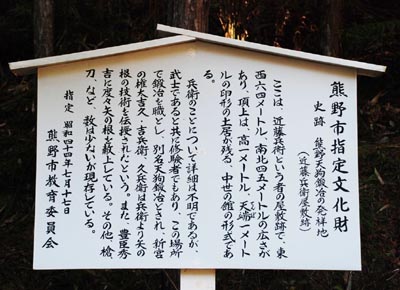 熊野市指定文化財
史跡 熊野天狗鍛冶の発祥地
（近藤兵衛屋敷跡）
ここは、近藤兵衛という者の屋敷跡で、東
西六四メートル、南北四五メートルの広さが
あり、頂上は、高一メートル、天端一メート
ルの印形の土居が残る、中世の館の形式であ
る。
兵衛のことについて詳細は不明であるが、
武士であると共に修験者でもあり、この場所
で鍛冶を職とし、別名天狗鍛冶とされ、新宮
の権大吉久、吉兵衛、久兵衛は兵衛より矢の
根の技術を伝授されたという。また、豊臣秀
吉に度々矢の根を献上している。その他、槍、
刀、など、数は少ないが現存している。
指定 昭和四十四年七月十七日
熊野市教育委員会